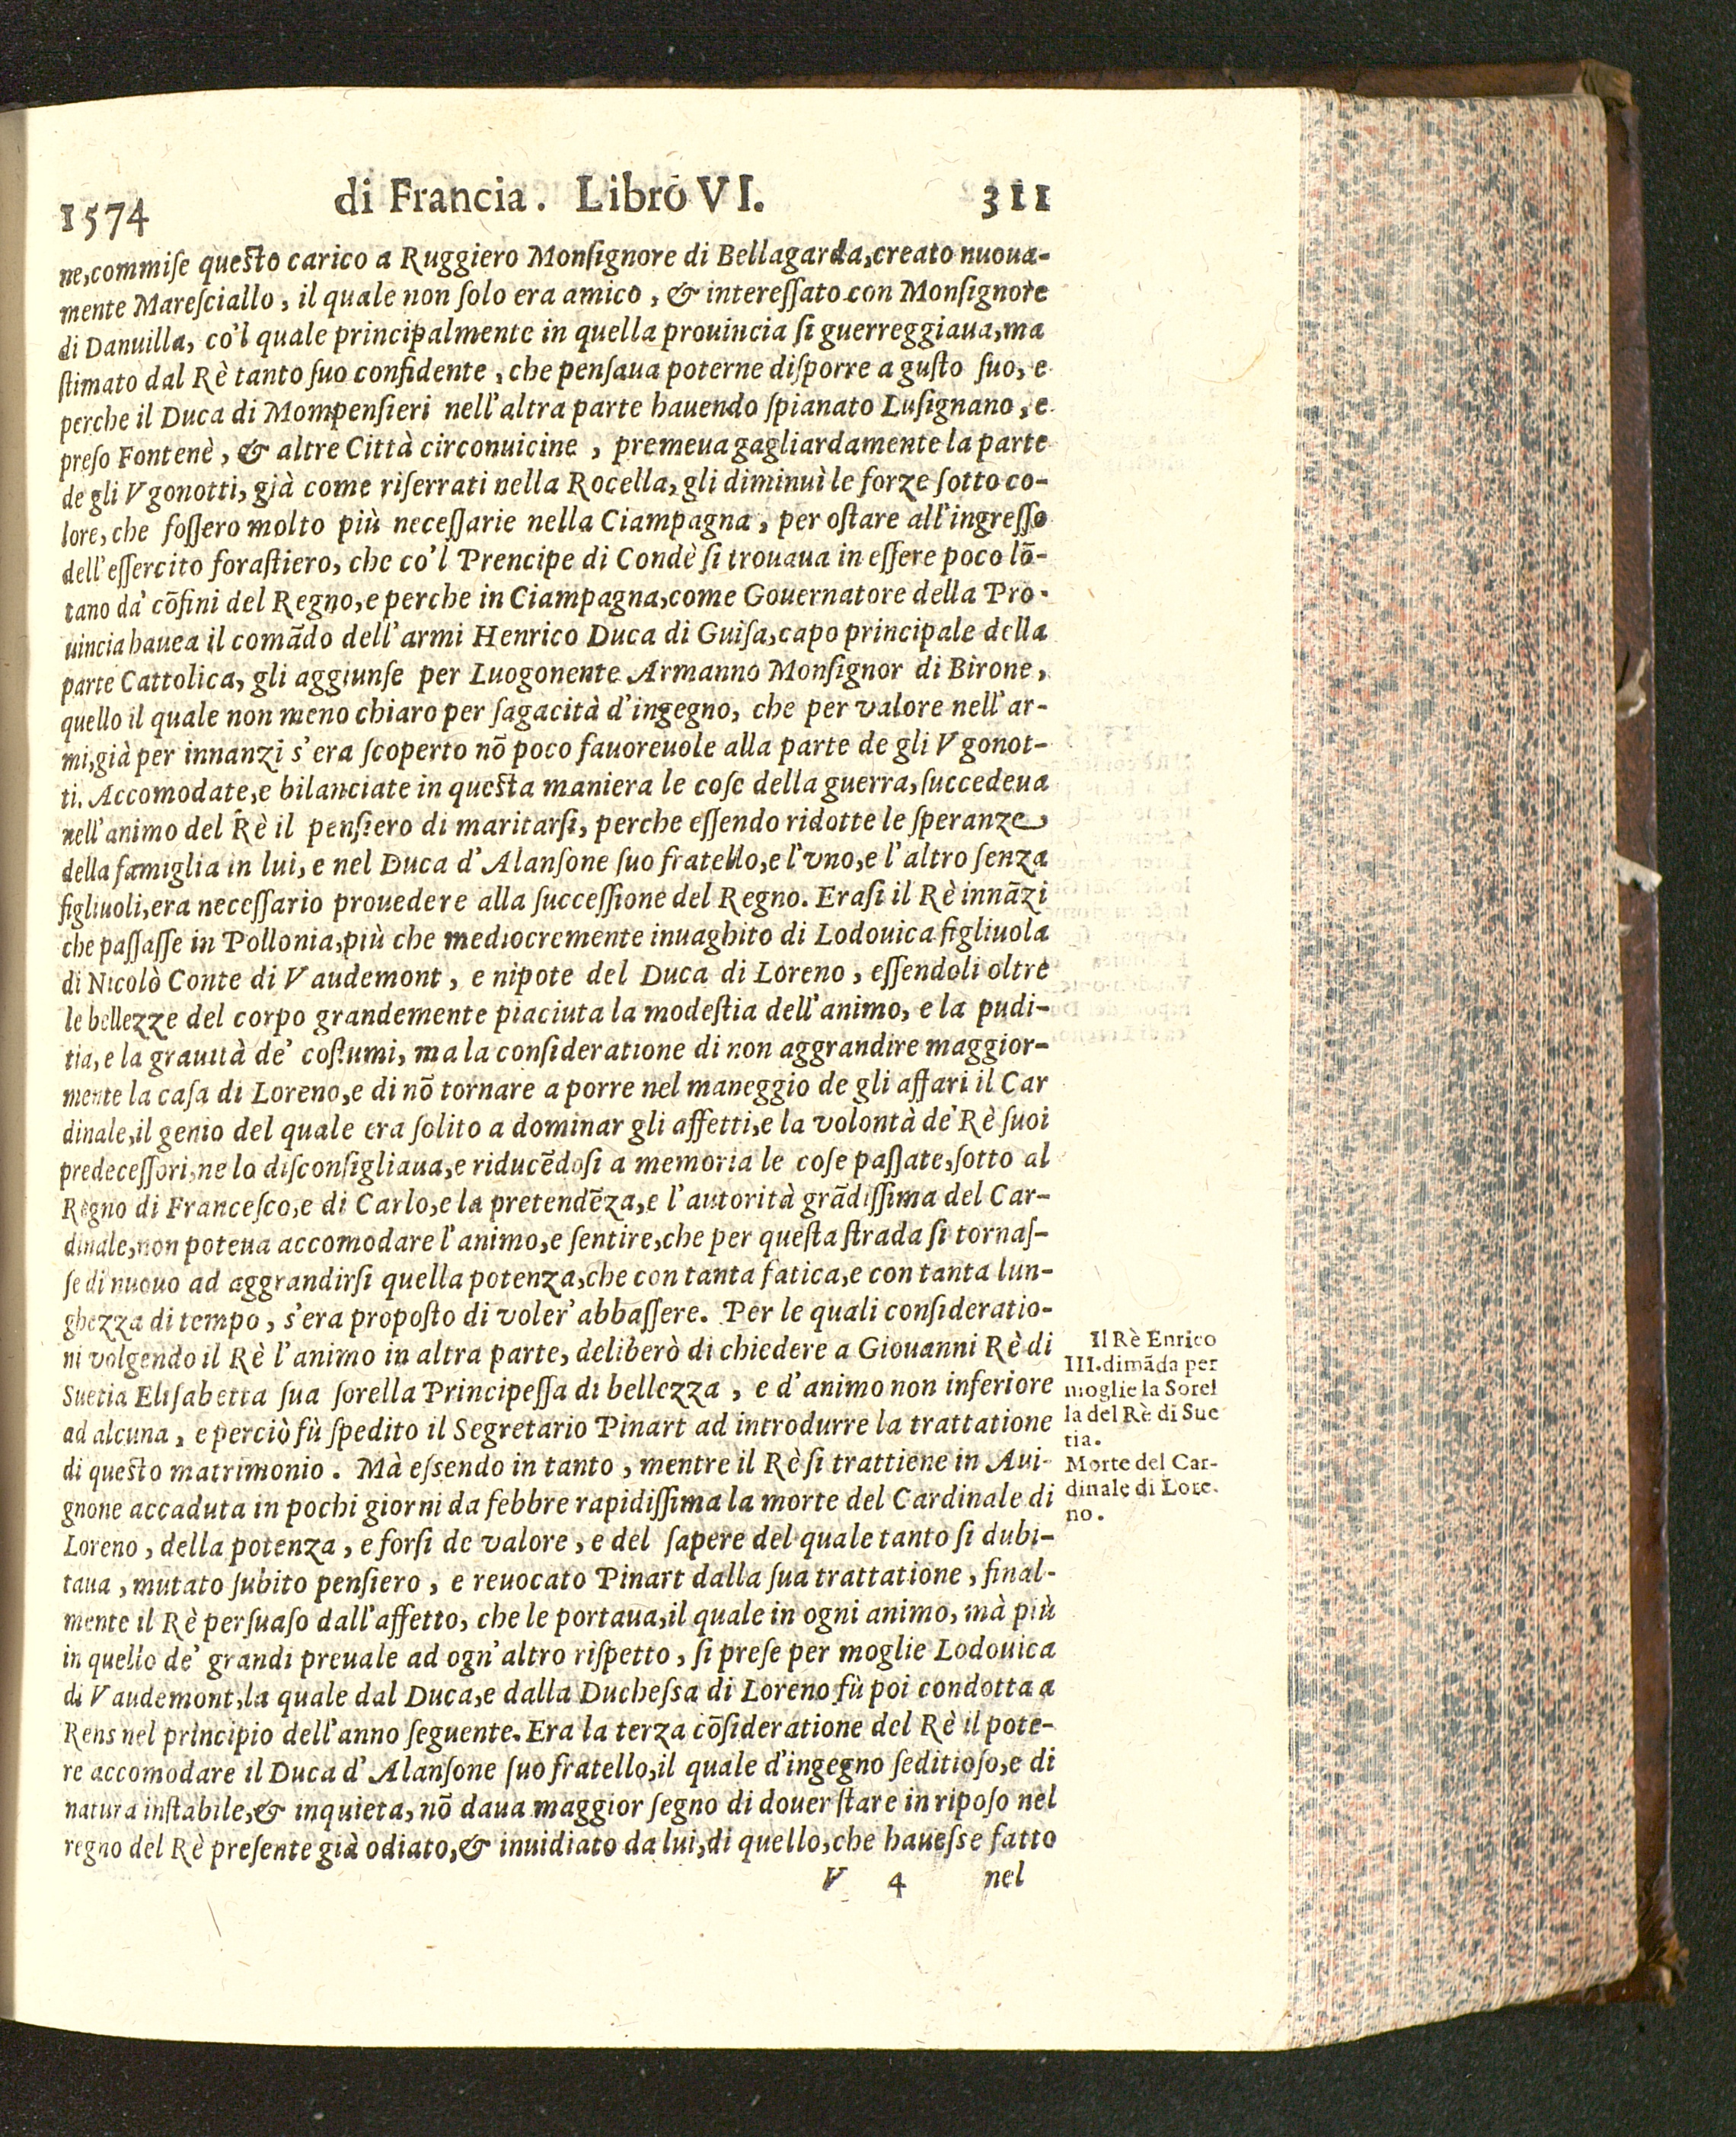 1574 di Francia. Libro VI. 311
ne, commiſe queſto carico a Ruggiero Monſignore di Bellagarda, creato nuoua-
mente Mareſciallo, il quale non ſolo era amico, & intereſſato con Monſignore
di Danuilla, co'l quale principalmente in quella prouincia ſi guerreggiaua, ma
ſtimato dal Rè tanto ſuo confidente, che penſaua poterne diſporre a guſto ſuo, e
perche il Duca di Mompenſieri nell'altra parte hauendo ſpianato Luſignano, e
preſo Fontenè, & altre Città circonuicine, premeua gagliardamente la parte
de gli Vgonotti, già come riſerrati nella Rocella, gli diminuì le forze ſotto co-
lore, che foſſero molto più neceſſarie nella Ciampagna, per oſtare all'ingreſſo
dell'eſſercito foraſtiero, che co'l Prencipe di Condè ſi trouaua in eſſere poco lõ-
tano da' cõfini del Regno, e perche in Ciampagna, come Gouernatore della Pro-
uincia hauea il comãdo dell'armi Henrico Duca di Guiſa, capo principale della
parte Cattolica, gli aggiunſe per Luogonente Armanno Monſignor di Birone,
quello il quale non meno chiaro per ſagacità d'ingegno, che per valore nell'ar-
mi, già per innanzi s'era ſcoperto nõ poco fauoreuole alla parte de gli Vgonot-
ti. Accomodate, e bilanciate in queſta maniera le coſe della guerra, ſuccedeua
nell'animo del Rè il penſiero di maritarſi, perche eſſendo ridotte le ſperanze
della famiglia in lui, e nel Duca d'Alanſone ſuo fratello, e l'vno, e l'altro ſenza
figliuoli, era neceſſario prouedere alla ſucceſſione del Regno. Eraſi il Rè innãzi
che paſſaſſe in Pollonia, più che mediocremente inuaghito di Lodouica figliuola
di Nicolò Conte di Vaudemont, e nipote del Duca di Loreno, eſſendoli oltre
le bellezze del corpo grandemente piaciuta la modeſtia dell'animo, e la pudi-
tia, e la grauità de' coſtumi, ma la conſideratione di non aggrandire maggior-
mente la caſa di Loreno, e di nõ tornare a porre nel maneggio de gli affari il Car
dinale, il genio del quale era ſolito a dominar gli affetti, e la volontà de' Rè ſuoi
predeceſſori, ne lo diſconſigliaua, e riducẽdoſi a memoria le coſe paſſate, ſotto al
Regno di Franceſco, e di Carlo, e la pretendẽza, e l'autorità grãdiſſima del Car-
dinale, non poteua accomodare l'animo, e ſentire, che per queſta ſtrada ſi tornaſ-
ſe di nuouo ad aggrandirſi quella potenza, che con tanta fatica, e con tanta lun-
ghezza di tempo, s'era propoſto di voler' abbaſſere. Per le quali conſideratio-
ni volgendo il Rè l'animo in altra parte, deliberò di chiedere a Giouanni Rè di
Suetia Eliſabetta ſua ſorella Principeſſa di bellezza, e d'animo non inferiore
ad alcuna, e perciò fù ſpedito il Segretario Pinart ad introdurre la trattatione
di queſto matrimonio. Mà eſsendo in tanto, mentre il Rè ſi trattiene in Aui-
gnone accaduta in pochi giorni da febbre rapidiſſima la morte del Cardinale di
Loreno, della potenza, e forſi de valore, e del ſapere del quale tanto ſi dubi-
taua, mutato ſubito penſiero, e reuocato Pinart dalla ſua trattatione, final-
mente il Rè perſuaſo dall'affetto, che le portaua, il quale in ogni animo, mà più
in quello de' grandi preuale ad ogn'altro riſpetto, ſi preſe per moglie Lodouica
di Vaudemont, la quale dal Duca, e dalla Ducheſsa di Loreno fù poi condotta a
Rens nel principio dell'anno ſeguente. Era la terza cõſideratione del Rè il pote-
re accomodare il Duca d'Alanſone ſuo fratello, il quale d'ingegno ſeditioſo, e di
natura inſtabile, & inquieta, nõ daua maggior ſegno di douer ſtare in ripoſo nel
regno del Rè preſente già odiato, & inuidiato da lui, di quello, che haueſse fatto
V 4 nel
Il Rè Enrico
III. dimãda per
moglie la Sorel
la del Rè di Sue
tia.
Morte del Car-
dinale di Lore-
no.